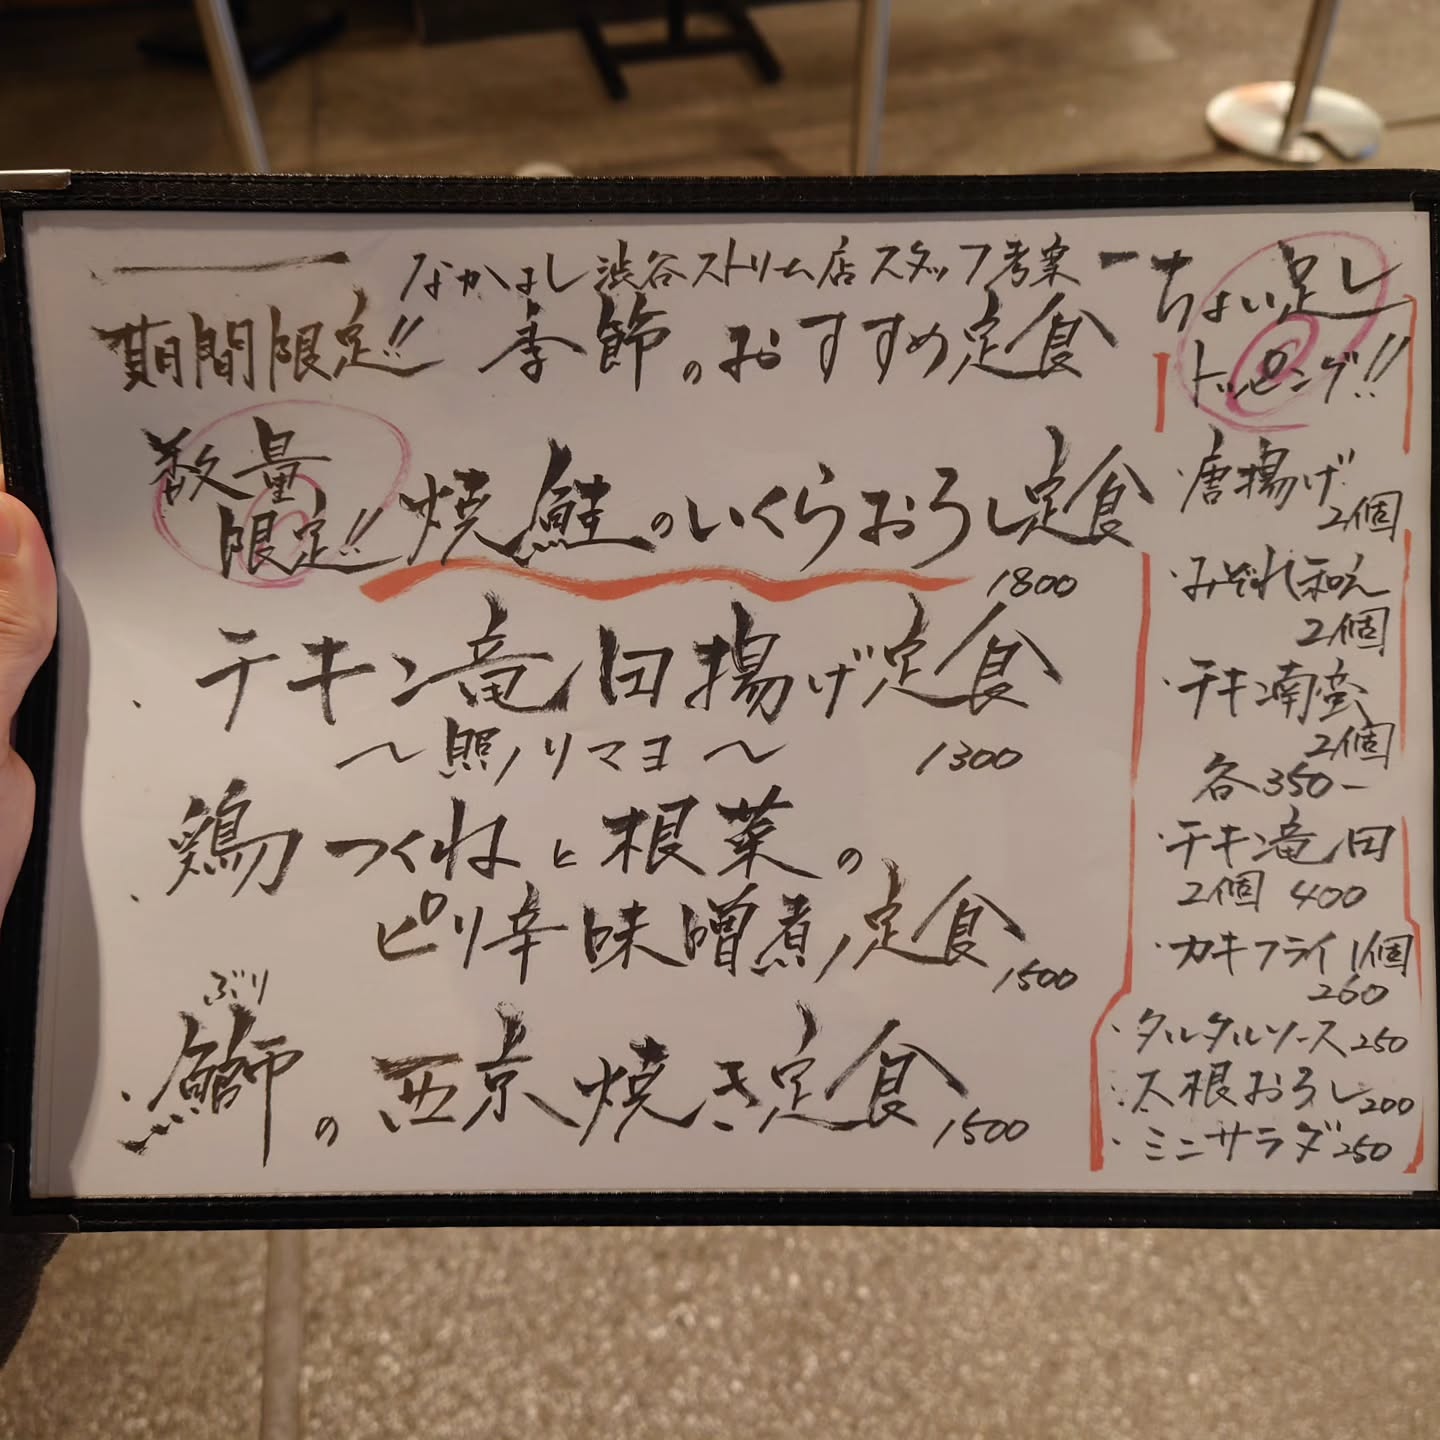 なかよし渋谷ストリーム店スタッフ考案
期間限定!! 季節のおすすめ定食
数量
限定!! 焼鮭のいくらおろし定食
1800
・チキン竜田揚げ定食
〜照ノリマヨ〜 1300
・鶏つくねと根菜の
ピリ辛味噌煮定食
1500
ぶり
・鰤の西京焼き定食
1500
ちょい足し
トッピング!!
・唐揚げ
2個
・みぞれ和え
2個
・チキン南蛮
2個
各350-
・チキン竜田
2個 400
・カキフライ 1個
260
・タルタルソース250
・大根おろし200
・ミニサラダ250